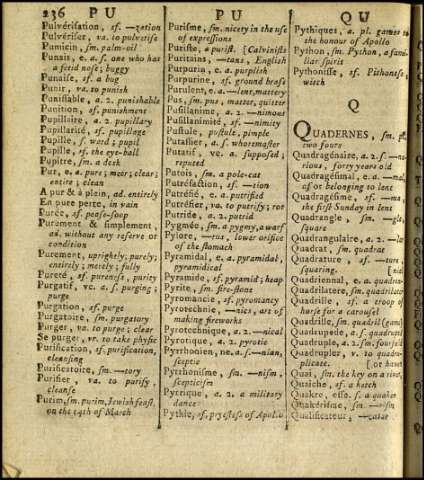 236 PU
PU
QU
Pulvérisation, sf. —zation
Pulvériser, va. to pulverise
Pumicin, sm. palm-oil
Punais, e a. s. one who has
a fetid nose; buggy
Punaise, sf. a bug
Punir, va. to punish
Punissable, a 2. punishable
Punition, sf. punishment
Pupillaire, a 2. pupillary
Pupillarité, sf. pupillage
Pupille, s. ward; pupil
Pupille, sf. the eye-ball
Pupitre, sm. a desk
Pur, e a. pure; meer; clear;
entire; clean
A pur & à plein, ad. entirely
En pure perte, in vain
Purée, sf. pease-soup
Purement & simplement,
ad. without any reserve or
condition
Purement, uprightly; purely;
entirely; merely; fully
Pureté, sf. pureness, purity
Purgatif, ve a. s. purging;
purge
Purgation, sf. purge
Purgatoire, sm. purgatory
Purger, va. to purge; clear
Se purger, vr. to take physic
Purification, sf. purification,
cleansing
Purificatoire, sm. —tory
Purifier, va. to purify,
cleanse
Purim, sm. purim, Jewish feast,
on the 14th of March
Purisme, sm. nicety in the use
of expressions
Puriste, a purist. [Calvinists
Puritains, —tans, English
Purpurin, e a. purplish
Purpurine, sf. ground brass
Purulent, e a. —lent, mattery
Pus, sm. pus, matter, quitter
Pusillanime, a 2. —nimous
Pusillanimité, sf. —nimity
Pustule, postule, pimple
Putassier, a s. whoremaster
Putatif, ve a. supposed;
reputed
Putois, sm. a pole-cat
Putréfaction, sf. —tion
Putréfié, e a. putrified
Putréfier, va. to putrify; rot
Putride, a 2. putrid
Pygmée, sm. a pygmy, a warf
Pylore, —rus, lower orifice
of the stomach
Pyramidal, e a. pyramidal,
pyramidical
Pyramide, sf. pyramid; heap
Pyrite, sm. fire-stone
Pyromancie, sf. pyromancy
Pyrotechnie, —nics, art of
making fireworks
Pyrotechnique, a 2. —nical
Pyrotique, a 2. pyrotic
Pyrrhonien, ne a. s. —nian,
sceptic
Pyrrhonisme, sm. —nism,
scepticism
Pyrrique, a 2. a military
dance
Pythie, sf. prystess of Apollo
Pythiques, a. pl. games to
the honour of Apollo
Python, sm. Python, a fami-
liar spirit
Pythonisse, sf. Pithoness;
witch
Q
QUADERNES, sm. pl.
two fours
Quadragénaire, a 2. s. —na-
rious, forty years old
Quadragésimal, e a. —mal,
of or belonging to lent
Quadragésime, sf. —ma,
the first Sunday in lent
Quadrangle, sm. —gle,
square
Quadrangulaire, a 2. —la
Quadrat, sm. quadrat
Quadrature, sf. —ture,
squaring.
Quadriennal, e a. quadrie
Quadrilatere, sm. quadrilater
Quadrille, sf. a troop of
horse for a carousel
Quadrille, sm. quadril (game)
Quadrupede, a s. quadrupede
Quadruple, a 2. sm. fourfold
Quadrupler, v. to quadru-
plicate. [or haven
Quai, sm. the key on a river,
Quaiche, sf. a ketch
Quakre, esse. s. a quaker
Quakérisme, sm. —rism
Qualificateur, —cator